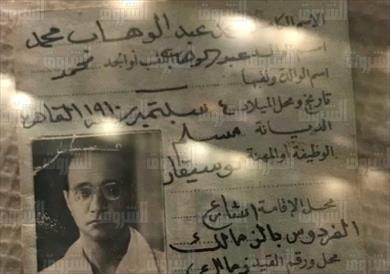 الاسم الكامل محمد عبد الوهاب محمد
اسم الوالد عبد الوهاب اللقب أو الجد محمد
اسم الوالدة ولقبها
تاريخ ومحل الميلاد ٤ سبتمبر ١٩١٠ القاهرة
الديانة مسلم
الوظيفة أو المهنة موسيقار
محل الإقامة ا شارع
الفردوس بالزمالك
محل ورقم القيد زمالك
الشروق